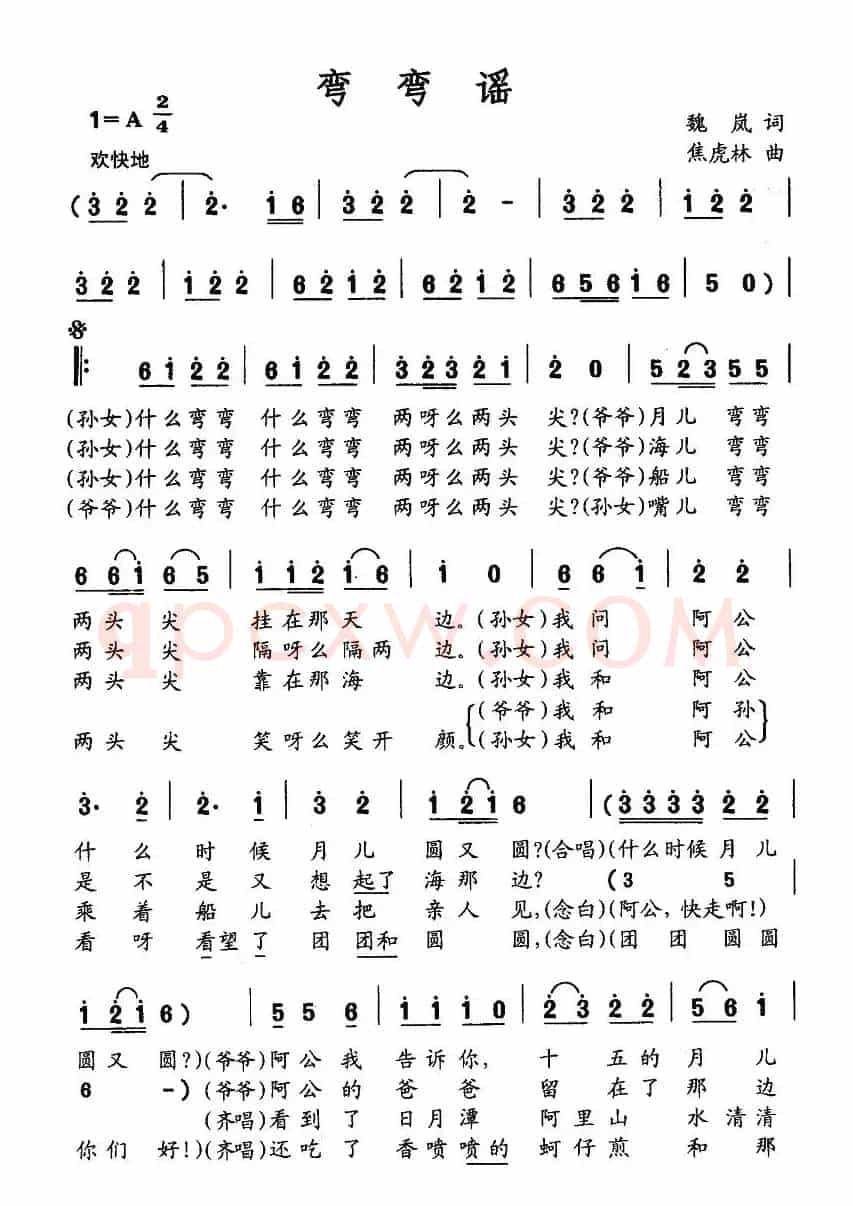 弯弯谣
1=A 2/4
魏岚词
欢快地
焦虎林 曲
(3 2 2 | 2· 1 6 | 3 2 2 | 2 - | 3 2 2 | 1 2 2 |
3 2 2 | 1 2 2 | 6 2 1 2 | 6 2 1 2 | 6 5 6 1 6 | 5 0) |
6 1 2 2 | 6 1 2 2 | 3 2 3 2 1 | 2 0 | 5 2 3 5 5 |
(孙女)什么弯弯 什么弯弯 两呀么两头 尖?(爷爷)月儿 弯弯
(孙女)什么弯弯 什么弯弯 两呀么两头 尖?(爷爷)海儿 弯弯
(孙女)什么弯弯 什么弯弯 两呀么两头 尖?(爷爷)船儿 弯弯
(爷爷)什么弯弯 什么弯弯 两呀么两头 尖?(孙女)嘴儿 弯弯
6 6 1 6 5 | 1 1 2 1 6 | 1 0 | 6 6 1 | 2 2 |
两头 尖 挂在那天 边。(孙女)我问 阿公
两头 尖 隔呀么隔两 边。(孙女)我问 阿公
两头 尖 靠在那海 边。(孙女)我和 阿公
(爷爷)我和 阿孙
两头 尖 笑呀么笑开 颜。(孙女)我和 阿公
qpcxw.com
3· 2 | 2· 1 | 3 2 | 1 2 1 6 | (3 3 3 3 2 2 |
什么 时候 月儿 圆又 圆?(合唱)(什么时候月儿
是不 是又 想起了 海那 边? (3 5
乘着 船儿 去把 亲人 见,(念白)(阿公,快走啊!)
看呀 看望了 团团和 圆 圆,(念白)(团团圆圆
1 2 1 6) | 5 5 6 | 1 1 1 0 | 2 3 2 2 | 5 6 1 |
圆又 圆?)(爷爷)阿公我 告诉你, 十五的 月儿
6 -)(爷爷)阿公的 爸爸 留在了 那边
(齐唱)看到了 日月潭 阿里山 水清清
你们 好!)(齐唱)还吃了 香喷喷的 蚵仔煎 和那